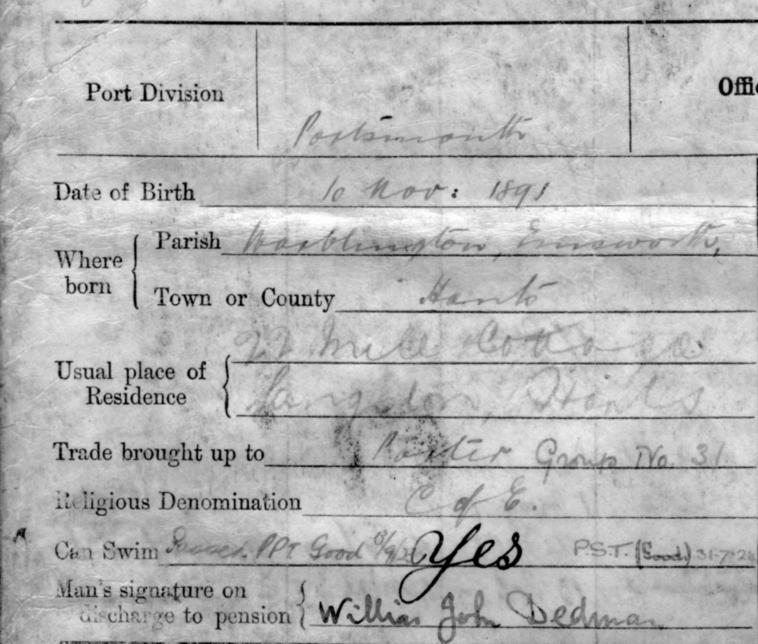 Port Division Portsmouth Offi
Date of Birth 10 Nov: 1891
Where born { Parish Warblington, Emsworth,
Town or County Hants
Usual place of Residence { Mill Cottage
Langston, Hants
Trade brought up to Porter Group No. 31
Religious Denomination C of E.
Can Swim Passed PPT Good Yes P.S.T. (Good) 31-7-2
Man's signature on discharge to pension { William John Dedman